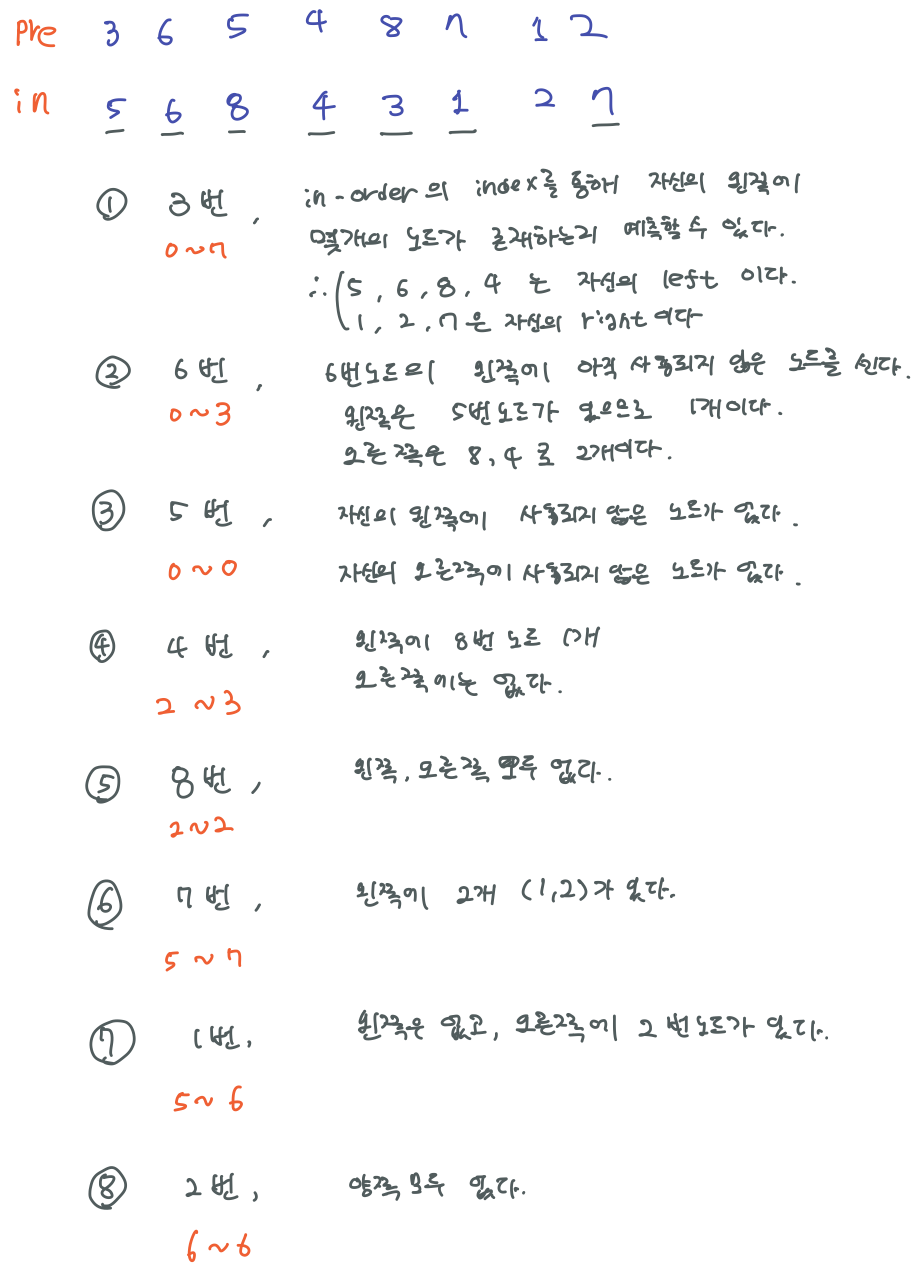 pre 3 6 5 4 8 7 1 2
in 5 6 8 4 3 1 2 7
① 3번, in-order의 index를 통해 자신의 왼쪽에
0~7 몇개의 노드가 존재하는지 예측할 수 있다.
∴ 5, 6, 8, 4 는 자신의 left 이다.
1, 2, 7은 자신의 right이다
② 6번, 6번노드의 왼쪽에 아직 사용되지 않은 노드를 센다.
0~3 왼쪽은 5번노드가 있으므로 1개이다.
오른쪽은 8, 4 로 2개이다.
③ 5번, 자신의 왼쪽에 사용되지 않은 노드가 없다.
0~0 자신의 오른쪽에 사용되지 않은 노드가 없다.
④ 4번, 왼쪽에 8번 노드 1개
2~3 오른쪽에는 없다.
⑤ 8번, 왼쪽, 오른쪽 모두 없다.
2~2
⑥ 7번, 왼쪽에 2개 (1,2)가 있다.
5~7
⑦ 1번, 왼쪽은 없고, 오른쪽에 2번노드가 있다.
5~6
⑧ 2번, 양쪽 모두 없다.
6~6